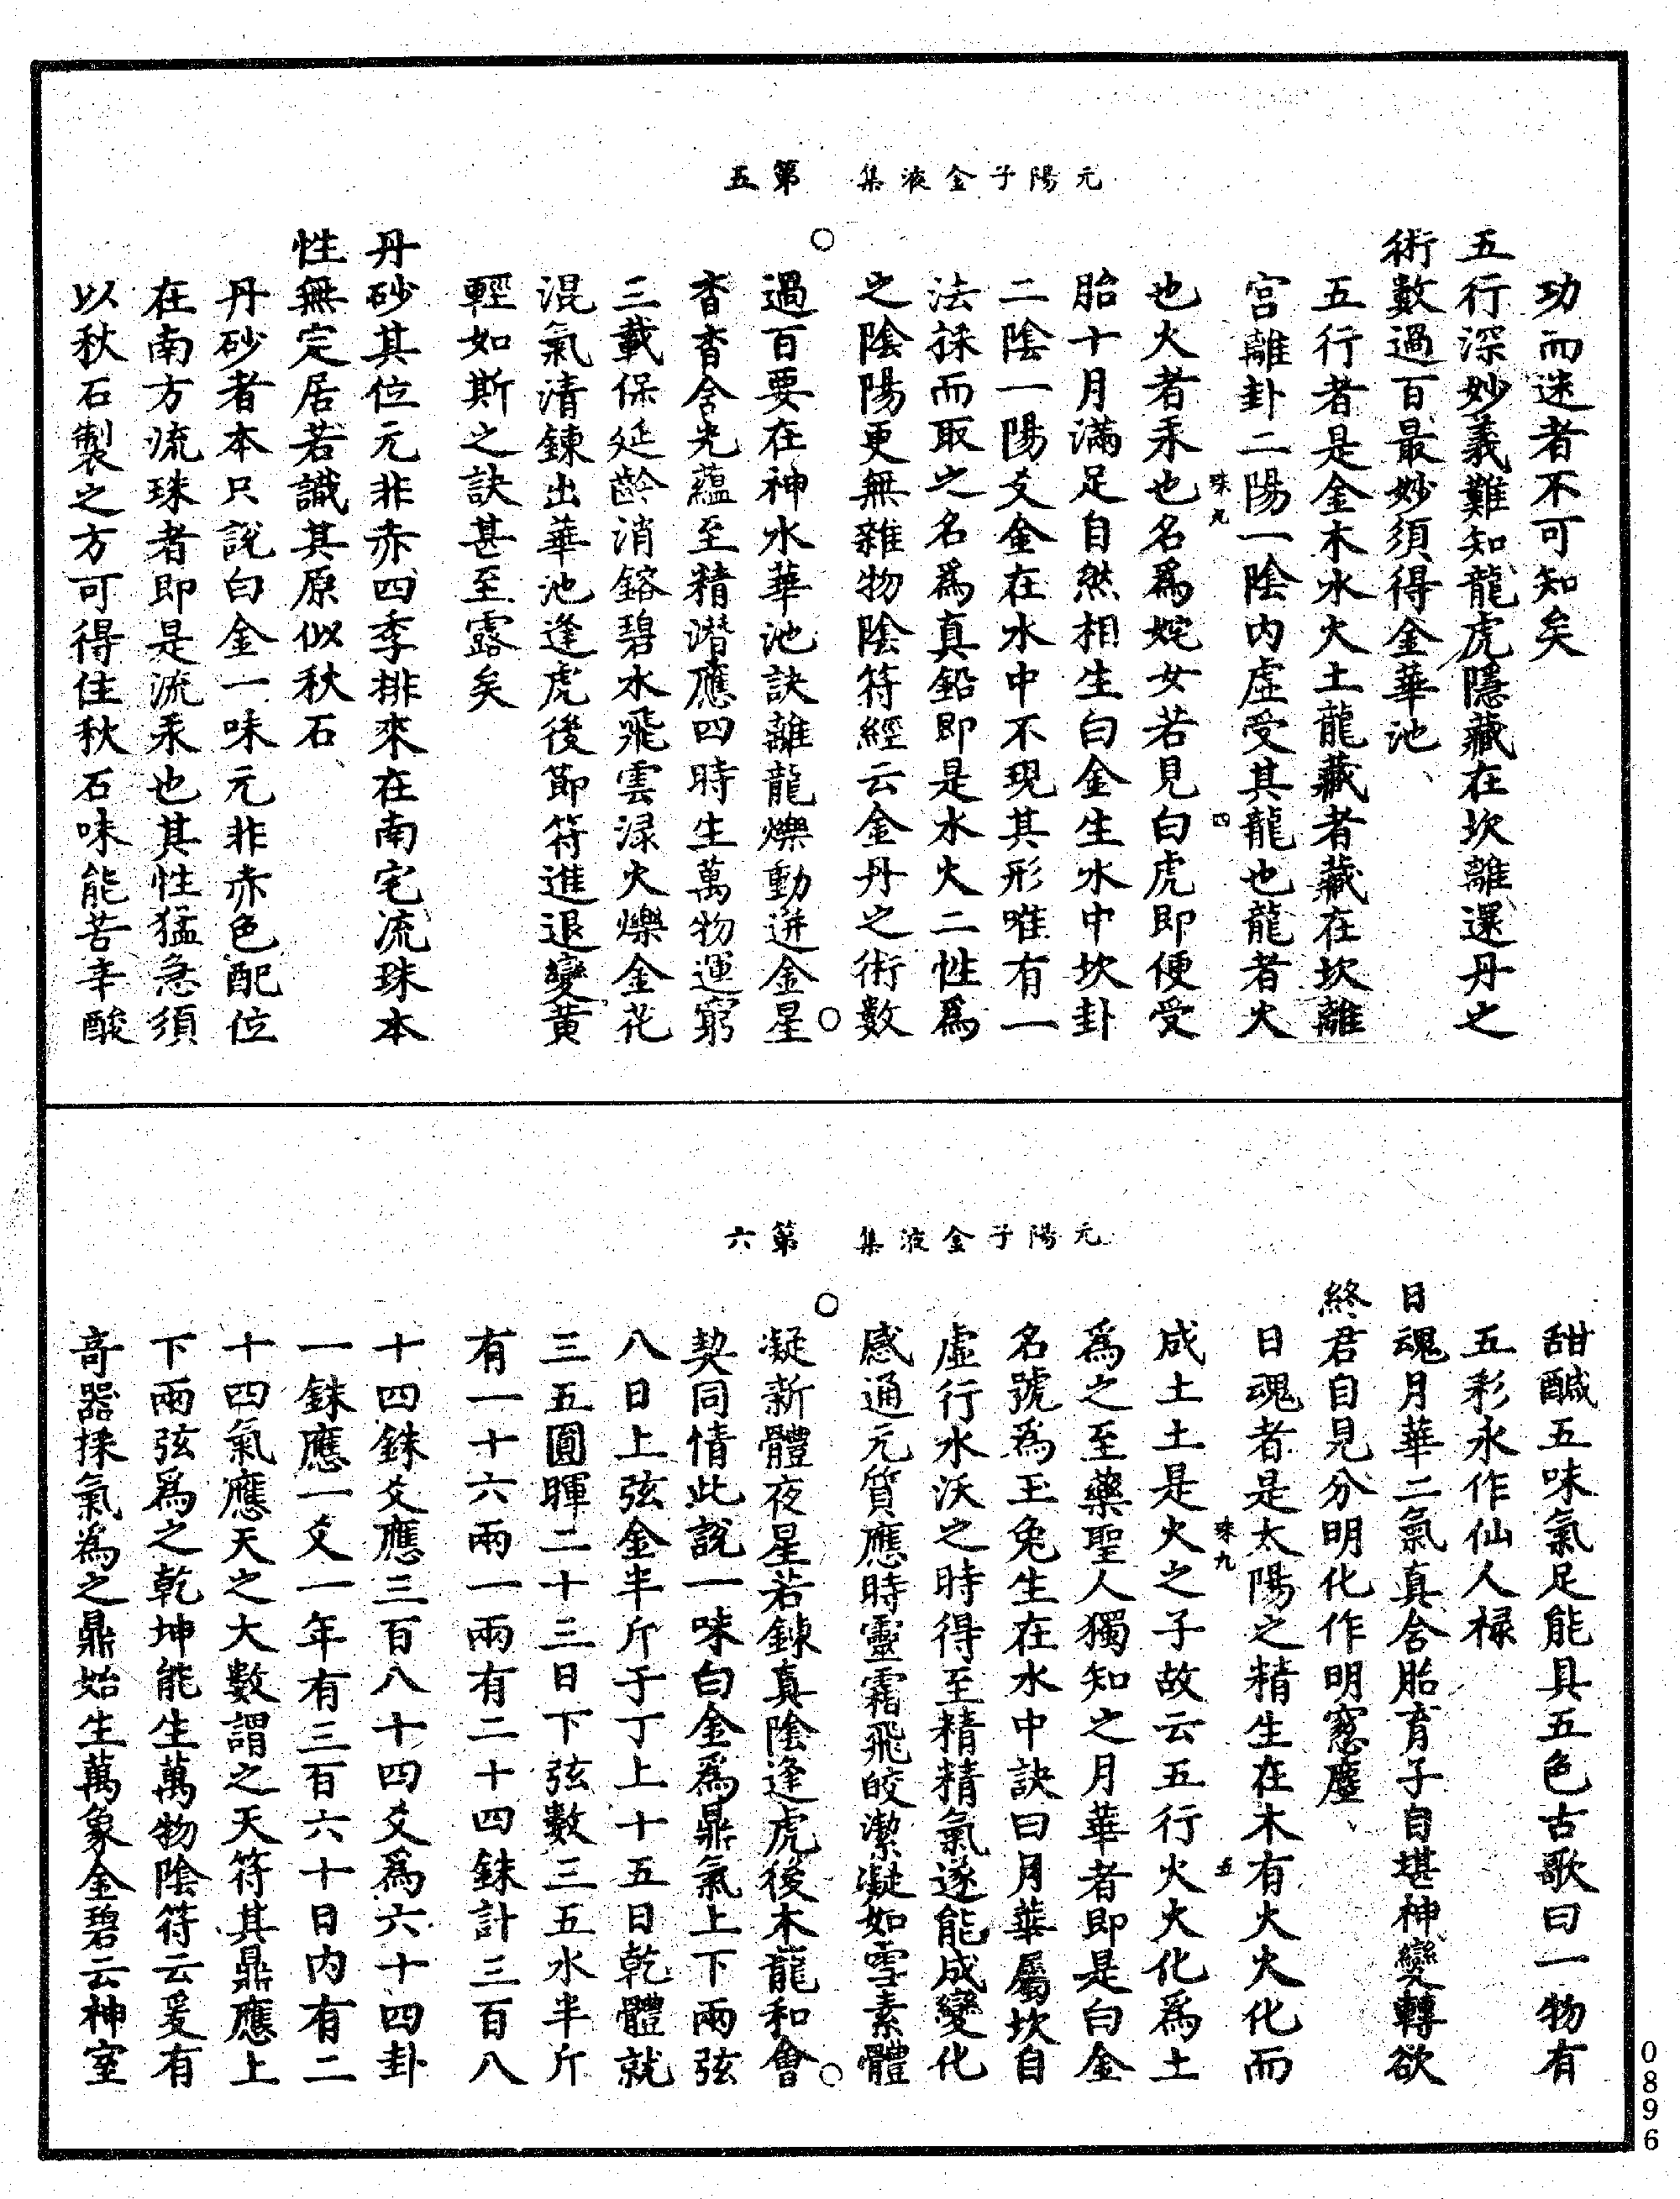 元陽子金液集　第五
功而迷者不可知矣
五行深妙義難知龍虎隱藏在坎離還丹之
術數過百最妙須得金華池
五行者是金木水火土龍藏者藏在坎離
宮離卦二陽一陰內虛受其龍也龍者火
珠九　四
也火者汞也名爲姹女若見白虎即便受
胎十月滿足自然相生白金生水中坎卦
二陰一陽爻金在水中不現其形唯有一
法採而取之名爲真鉛即是水火二性爲
之陰陽更無雜物陰符經云金丹之術數
過百要在神水華池訣離龍爍動迸金星
杳杳含光蘊至精潛應四時生萬物運窮
三載保延齡消鎔碧水飛雲淥火爍金花
混氣清鍊出華池逢虎後節符進退變黃
輕如斯之訣甚至露矣
丹砂其位元非赤四季排來在南宅流珠本
性無定居若識其原似秋石
丹砂者本只說白金一味元非赤色配位
在南方流珠者即是流汞也其性猛急須
以秋石製之方可得住秋石味能苦辛酸
元陽子金液集　第六
甜鹹五味氣足能具五色古歌曰一物有
五彩永作仙人祿
日魂月華二氣真含胎育子自堪神變轉欲
終君自見分明化作明窓塵
日魂者是太陽之精生在木有火火化而
珠九　五
成土土是火之子故云五行火火化爲土
爲之至藥聖人獨知之月華者即是白金
名號爲玉兔生在水中訣曰月華屬坎自
虛行水沃之時得至精精氣遂能成變化
感通元質應時靈霜飛皎潔凝如雪素體
凝新體夜星若鍊真陰逢虎後木龍和會
契同情此說一味白金爲鼎氣上下兩弦
八日上弦金半斤于丁上十五日乾體就
三五圓暉二十三日下弦數三五水半斤
有一十六兩一兩有二十四銖計三百八
十四銖爻應三百八十四爻爲六十四卦
一銖應一爻一年有三百六十日內有二
十四氣應天之大數謂之天符其鼎應上
下兩弦爲之乾坤能生萬物陰符云爰有
奇器揉氣為之鼎始生萬象金碧云神室
0896